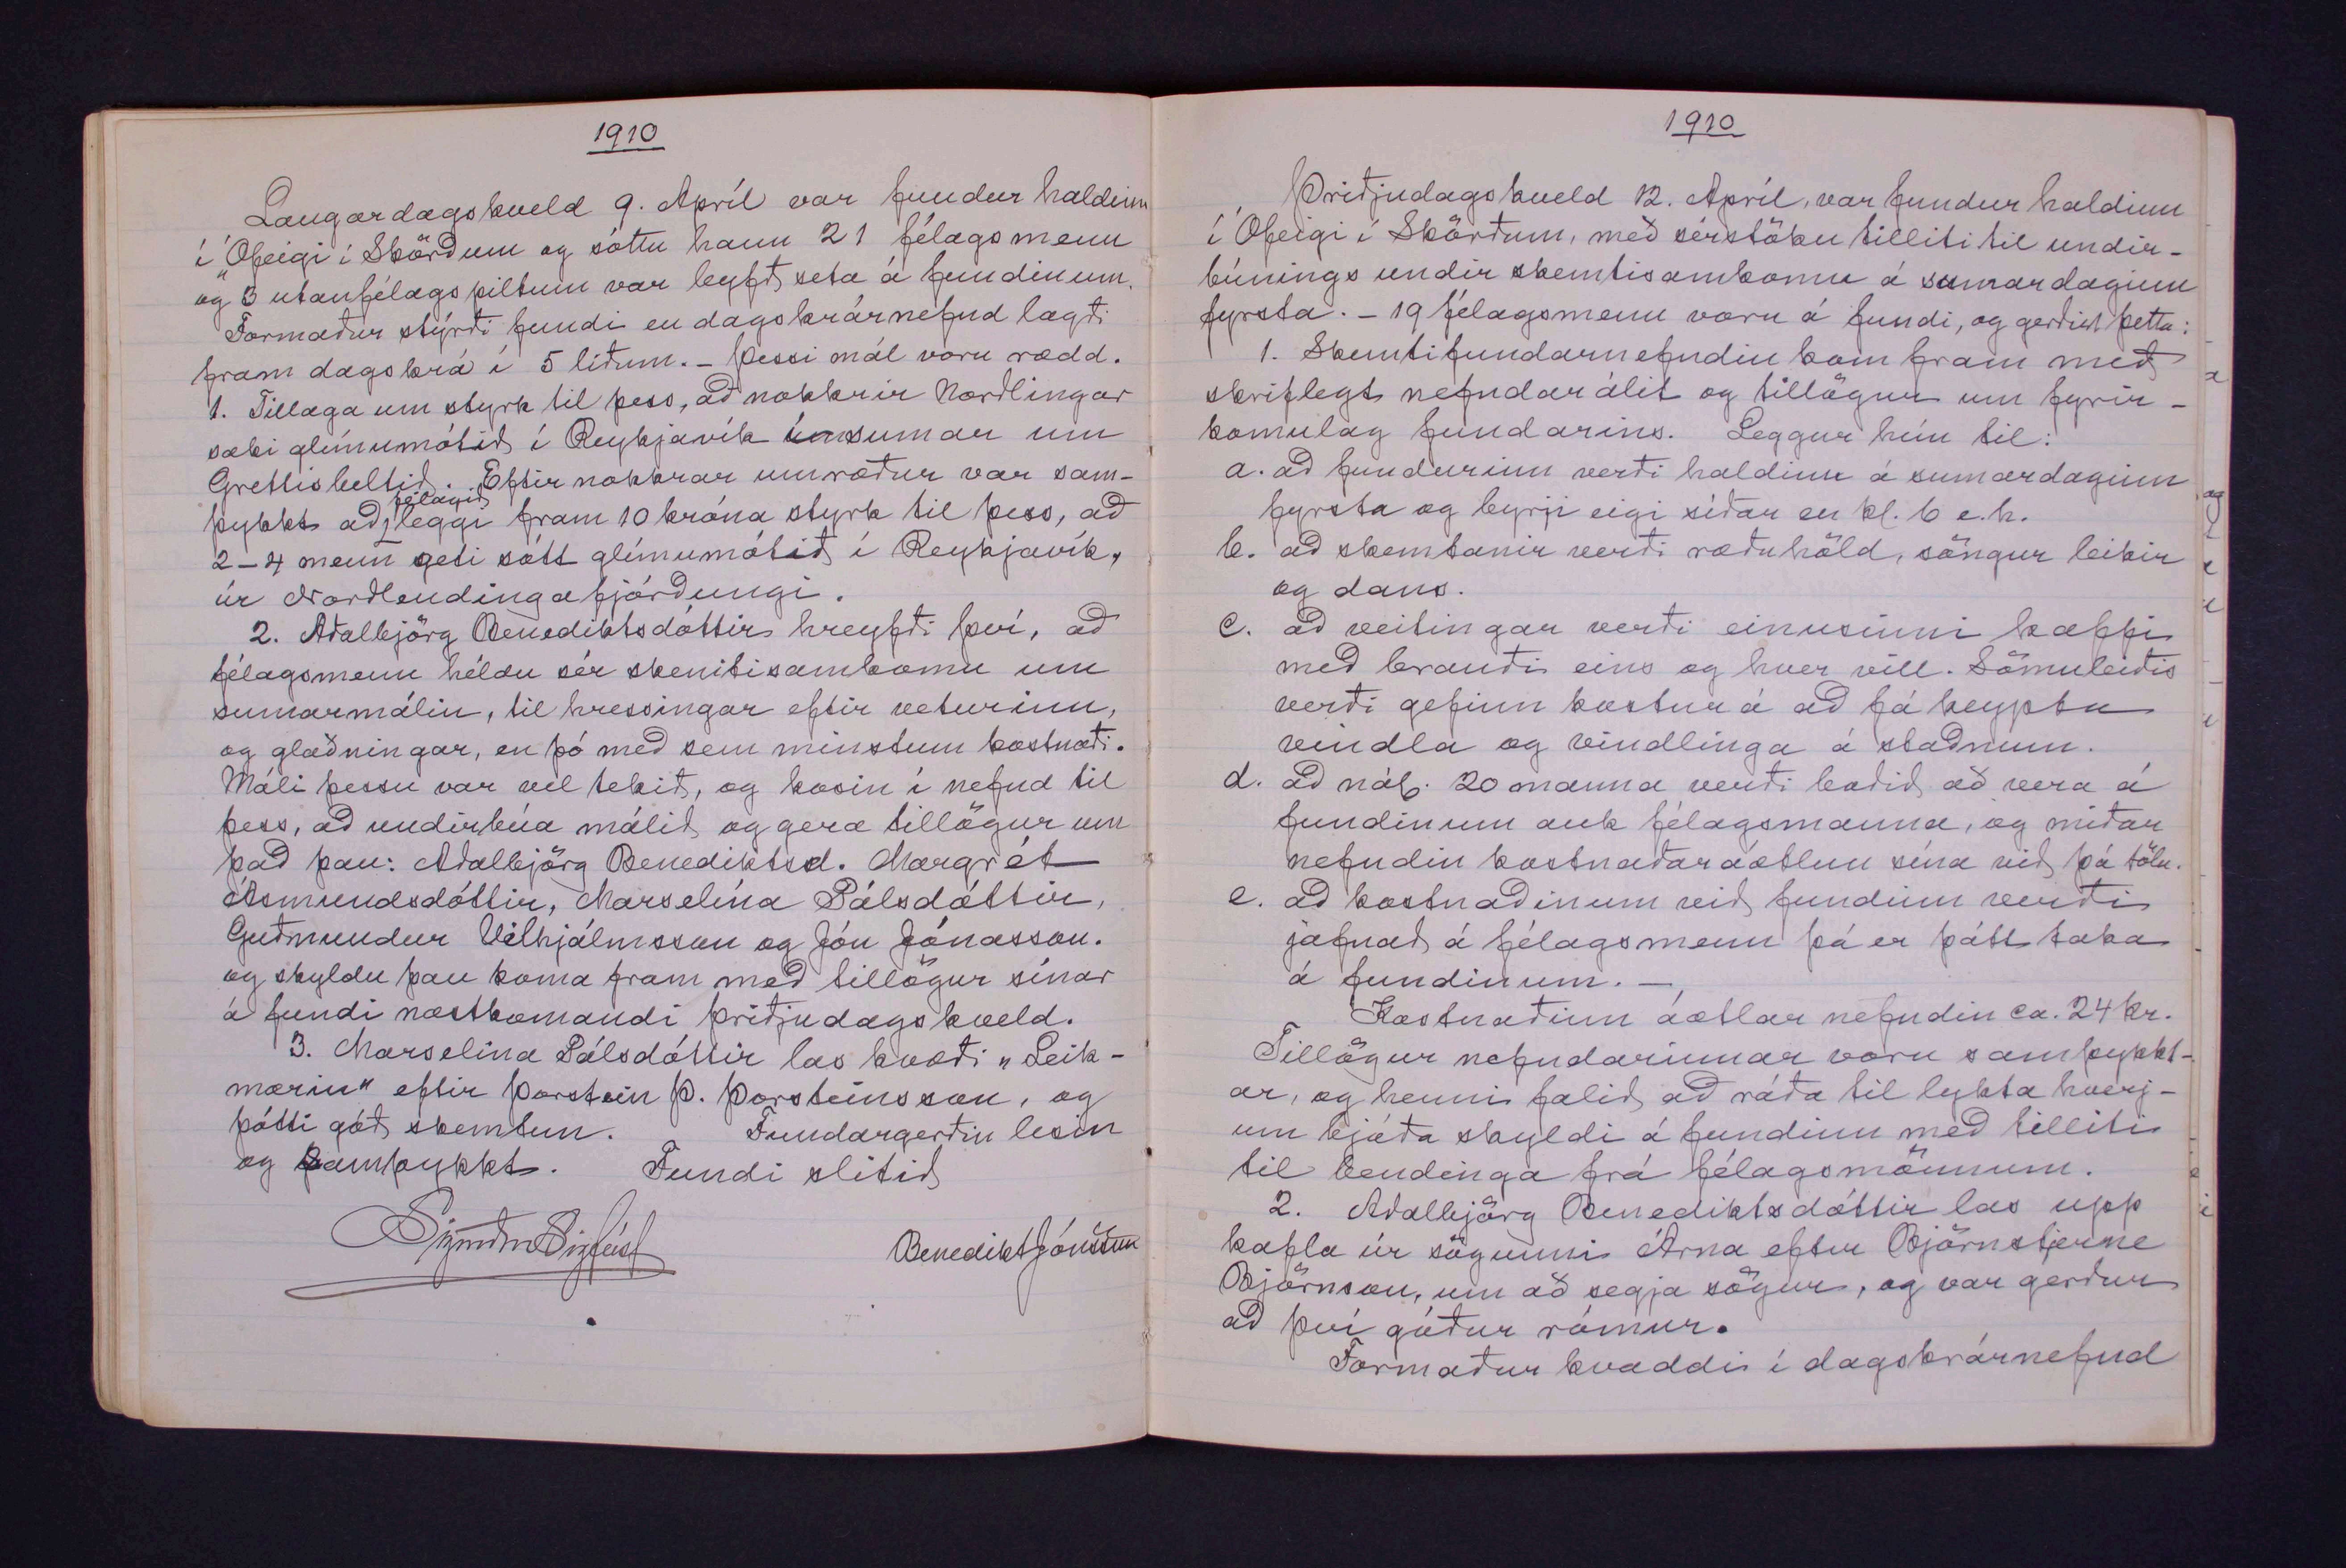 1910
Laugardagskveld 9. Apríl var fundur haldinn
í „Ófeigi í Skörðum og sóttu hann 21 félagsmenn
og 3 utanfélagspiltum var leyft seta á fundinum.
Formaður stýrði fundi en dagskrárnefnd lagði
fram dagskrá í 5 liðum. – Þessi mál voru rædd.
1. Tillaga um styrk til þess, að nokkrir Norðlingar
sæki glímumótið í Reykjavík í sumar um
Grettisbeltið. Eftir nokkrar umræður var sam-
félagið
þykkt að leggi fram 10 króna styrk til þess, að
2-4 menn geti sótt glímumótið í Reykjavík,
úr Norðlendingafjórðungi.
2. Aðalbjörg Benediktsdóttir hreyfði því, að
félagsmenn héldu sér skemtisamkomu um
sumarmálin, til hressingar eftir veturinn,
og glaðningar, en þó með sem minstum kostnaði.
Máli þessu var vel tekið, og kosin í nefnd til
þess, að undirbúa málið og gera tillögur um
það þau: Aðalbjörg Benediktsd. Margrét
Ásmundsdóttir, Marselína Pálsdóttir,
Guðmundur Vilhjálmsson og Jón Jónasson.
og skyldu þau koma fram með tillögur sínar
á fundi næstkomandi þriðjudagskveld.
3. Marselína Pálsdóttir las kvæði „Leik-
mærin" eftir Þorstein Þ. Þorsteinsson, og
þótti góð skemtun. Fundargerðin lesin
og samþykkt. Fundi slitið
Sigmðr Sigfúss
Benedikt Jónsson
1910
Þriðjudagskveld 12. Apríl, var fundur haldinn
í Ófeigi í Skörðum, með sérstöku tilliti til undir-
búnings undir skemtisamkomu á sumardaginn
fyrsta. – 19 félagsmenn voru á fundi, og gerðist þetta:
1. Skemtifundarnefndin kom fram með
skriflegt nefndarálit og tillögur um fyrir-
komulag fundarins. Leggur hún til:
a. að fundurinn verði haldinn á sumardaginn
fyrsta og byrji eigi síðar en kl. 6 e.h.
b. að skemtanir verði ræðuhöld, söngur leikir
og dans.
c. að veitingar verði einusinni kaffi
með brauði eins og hver vill. Sömuleiðis
verði gefinn kostur á að fá keypta
vindla og vindlinga á staðnum.
d. að nál. 20 manna verði boðið að vera á
fundinum auk félagsmanna, og miðar
nefndin kostnaðaráætlun sína við þá tölu.
e. að kostnaðinum við fundinn verði
jafnað á félagsmenn þá er þátt taka
á fundinum. –
Kostnaðinn áætlar nefndin ca. 24 kr.
Tillögur nefndarinnar voru samþykkt-
ar, og henni falið að ráða til lykta hverj-
um bjóða skyldi á fundinn með tilliti
til bendinga frá félagsmönnum.
2. Aðalbjörg Benediktsdóttir las upp
kafla úr sögunni Árna eftir Björnstjerne
Björnson, um að segja sögur, og var gerður
að því góður rómur.
Formaður kvaddi í dagskrárnefnd